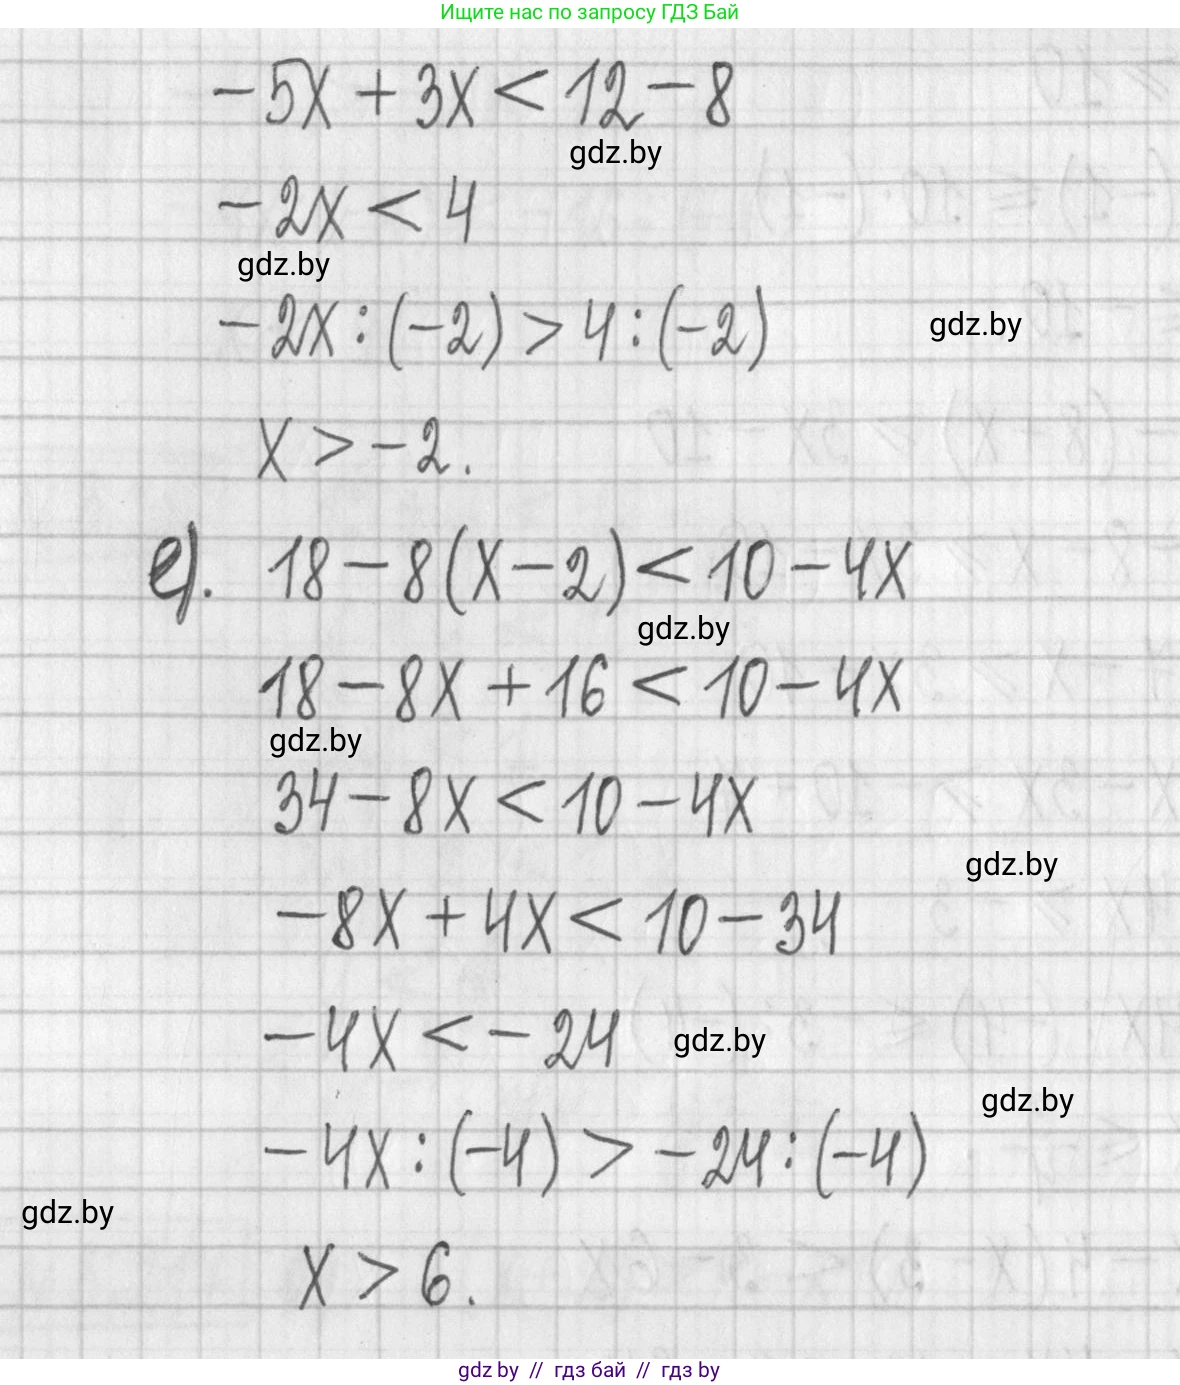 Ищите нас по запросу ГДЗ Бай
-5x + 3x < 12 - 8
gdz.by
-2x < 4
gdz.by
-2x : (-2) > 4 : (-2)
gdz.by
x > -2.
е). 18 - 8(x - 2) < 10 - 4x
gdz.by
18 - 8x + 16 < 10 - 4x
gdz.by
34 - 8x < 10 - 4x
gdz.by
-8x + 4x < 10 - 34
-4x < -24
gdz.by
gdz.by
-4x : (-4) > -24 : (-4)
gdz.by
x > 6.
gdz by // гдз бай // гдз by